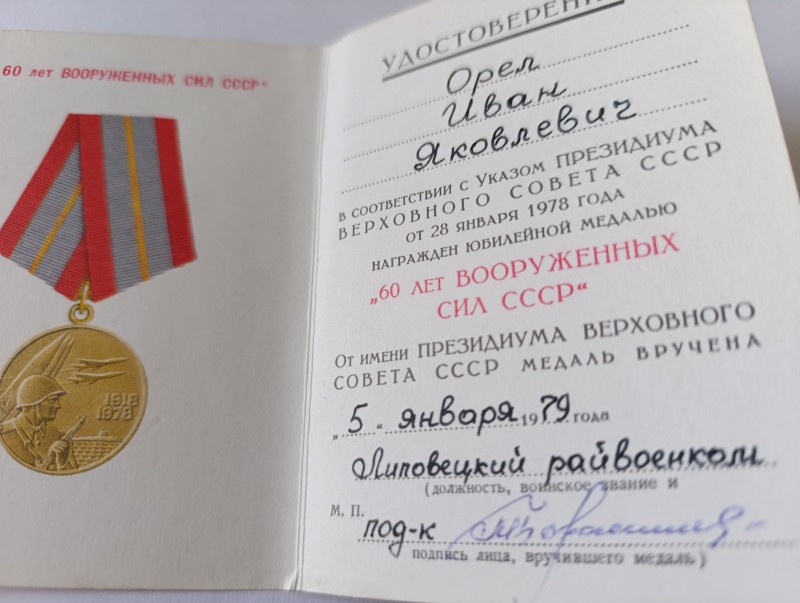 60 лет ВООРУЖЕННЫХ СИЛ СССР"
1918
1978
УДОСТОВЕРЕНИ
Орел
Иван
Яковлевич
В СООТВЕТСТВИИ С УКАЗОМ ПРЕЗИДИУМА
ВЕРХОВНОГО СОВЕТА СССР
ОТ 28 ЯНВАРЯ 1978 ГОДА
НАГРАЖДЕН ЮБИЛЕЙНОЙ МЕДАЛЬЮ
„60 ЛЕТ ВООРУЖЕННЫХ
СИЛ СССР“
От имени ПРЕЗИДИУМА ВЕРХОВНОГО
СОВЕТА СССР МЕДАЛЬ ВРУЧЕНА
„5“ января 1979 года
Липовецкий райвоенком
(должность, воинское звание и
М. П.
под-к
подпись лица, вручившего медаль)